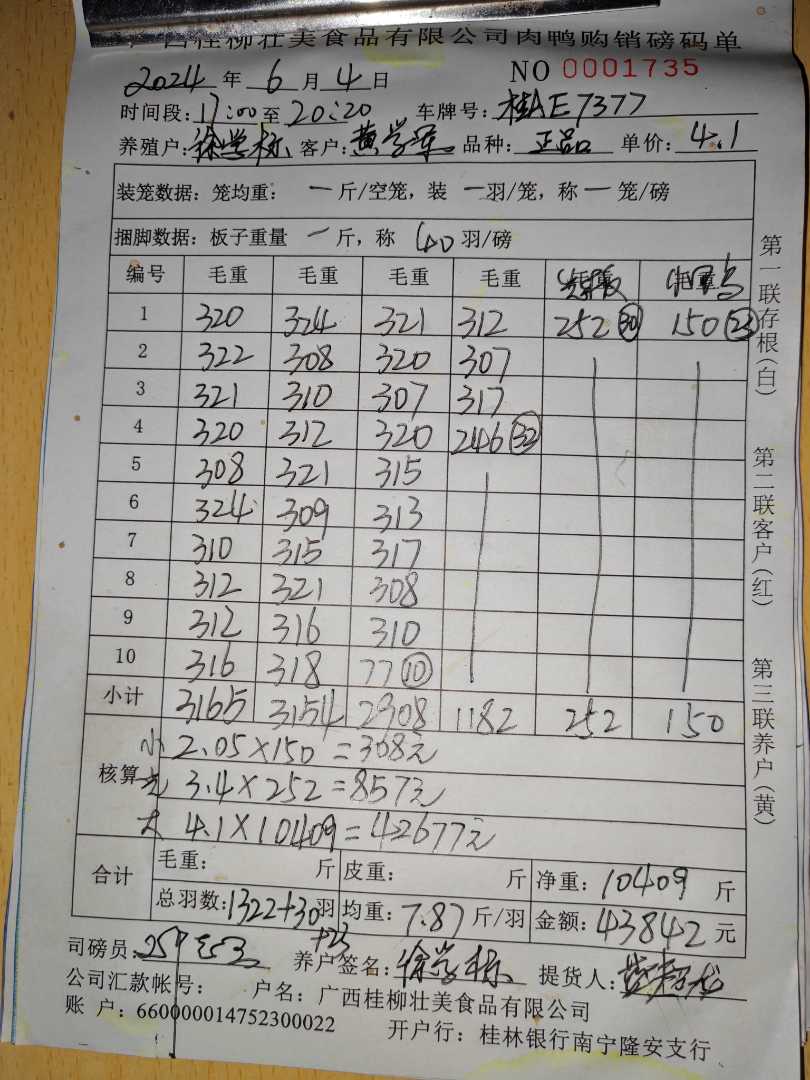 广西桂柳壮美食品有限公司肉鸭购销磅码单
2024 年 6 月 4 日 NO 0001735
时间段: 17:00 至 20:20 车牌号: 桂AE7377
养殖户: 徐学标 客户: 黄学军 品种: 正品 单价: 4.1
装笼数据: 笼均重: 一 斤/空笼, 装 一 羽/笼, 称 一 笼/磅
捆脚数据: 板子重量 一 斤, 称 40 羽/磅
编号 毛重 毛重 毛重 毛重 毛重 毛重
1 320 324 321 312 252 (30) 150 (23)
2 322 308 320 307
3 321 310 307 317
4 320 312 320 246 (32)
5 308 321 315
6 324 309 313
7 310 315 317
8 312 321 308
9 312 316 310
10 316 318 77 (10)
小计 3165 3154 2908 1182 252 150
核算
小 2.05×150=308元
3.4×252=857元
大 4.1×10409=42677元
合计 毛重: 斤 皮重: 斤 净重: 10409 斤
总羽数: 1322+30 羽 均重: 7.87 斤/羽 金额: 43842 元
+23
司磅员: 养户签名: 徐学标 提货人:
公司汇款帐号: 户名: 广西桂柳壮美食品有限公司
账 户: 660000014752300022 开户行: 桂林银行南宁隆安支行
第一联存根(白)
第二联客户(红)
第三联养户(黄)